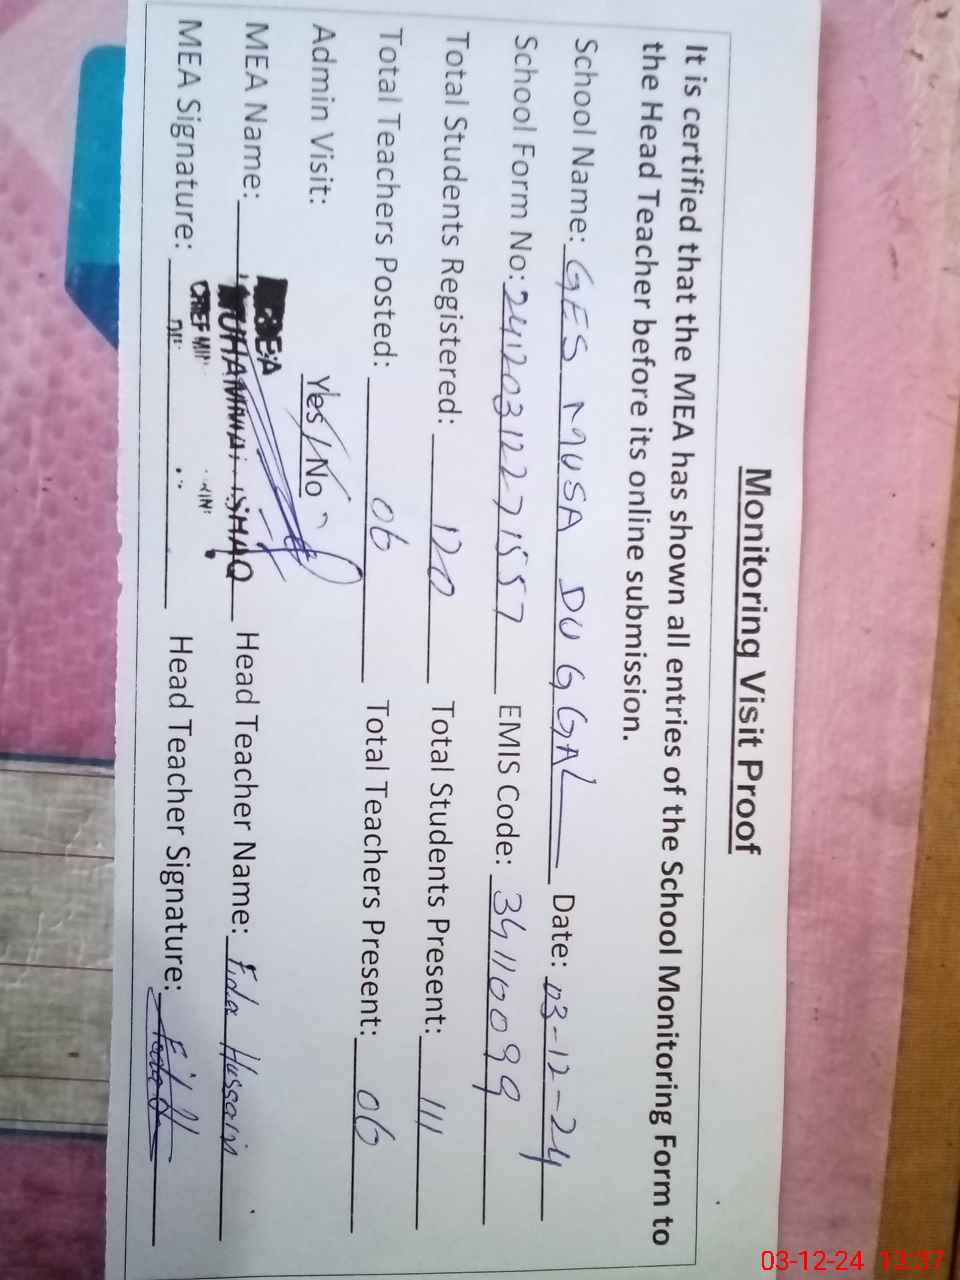 Monitoring Visit Proof
It is certified that the MEA has shown all entries of the School Monitoring Form to
the Head Teacher before its online submission.
School Name: GES MUSA DUGGAL Date: 03-12-24
School Form No: 24120312271557 EMIS Code: 34110099
Total Students Registered: 120 Total Students Present: 111
Total Teachers Posted: 06 Total Teachers Present: 06
Admin Visit: Yes / No
MEA Name: MUHAMMAD ISHAQ Head Teacher Name: Fida Hussain
MEA Signature: Head Teacher Signature:
03-12-24 13:37